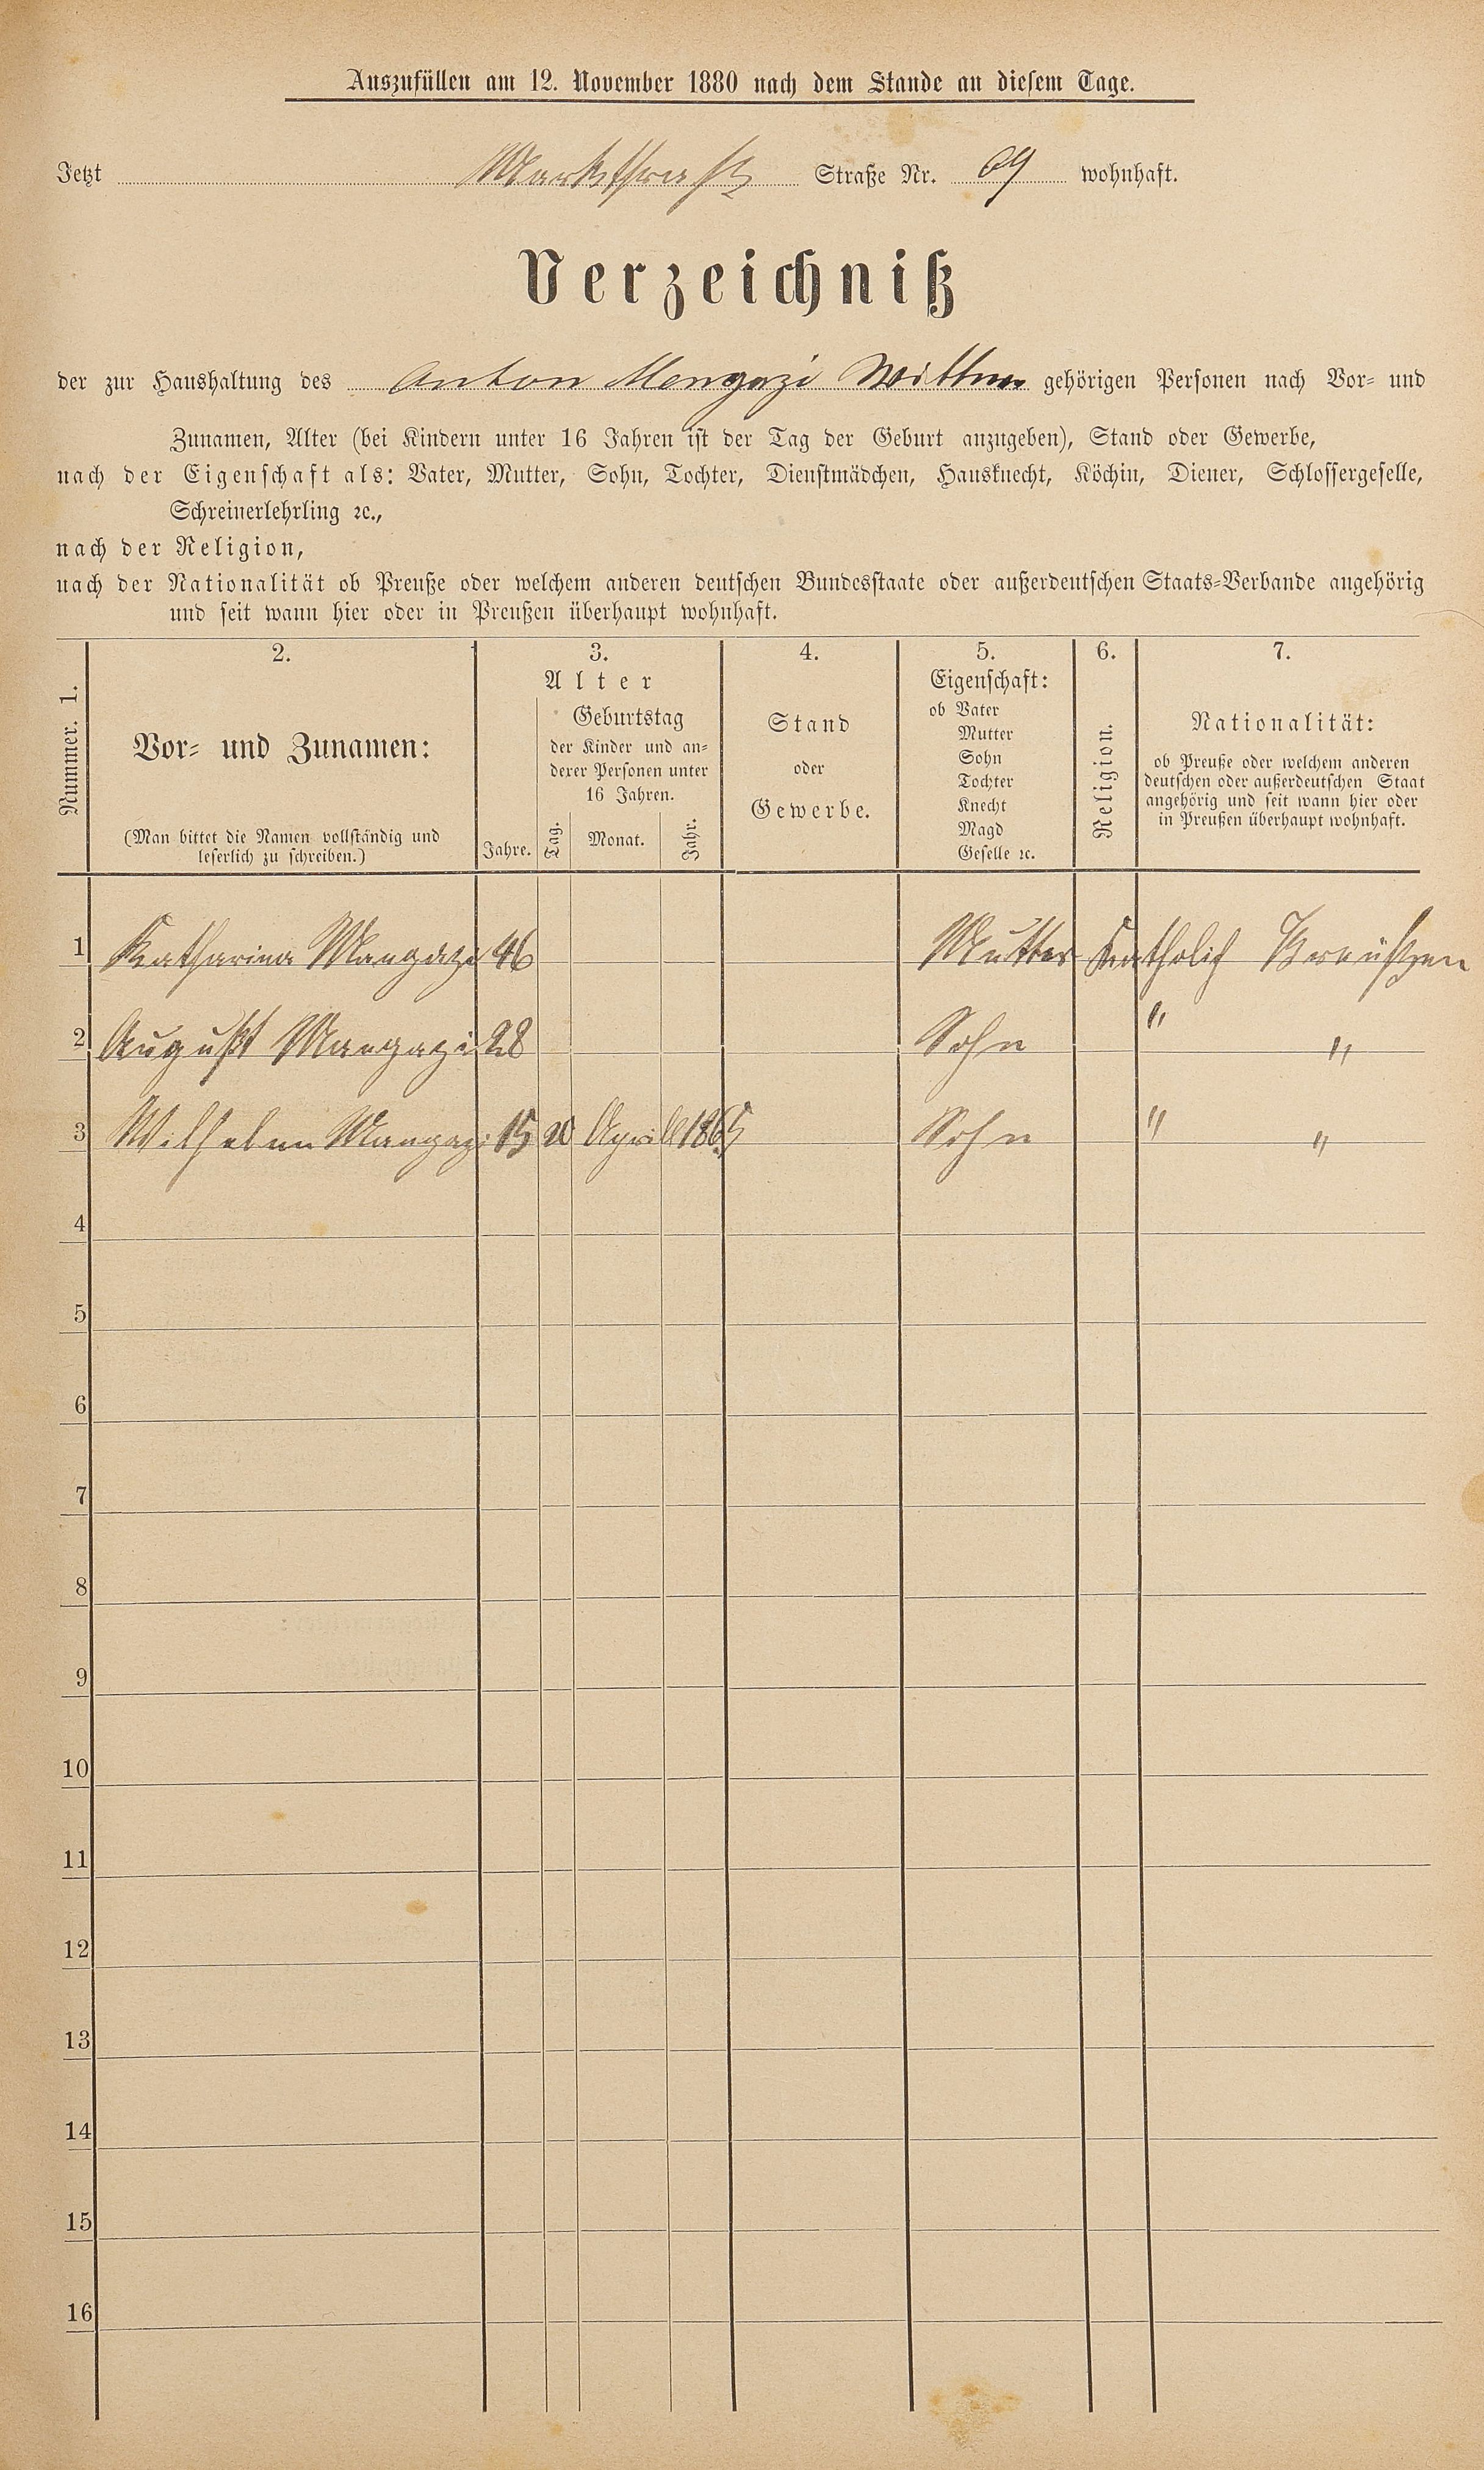 Auszufüllen am 12. November 1880 nach dem Stande an diesem Tage.
Jetzt Straße Nr. 69 wohnhaft.
Verzeichniß
der zur Haushaltung des Anton Mengazi gehörigen Personen nach Vor- und
Zunamen, Alter (bei Kindern unter 16 Jahren ist der Tag der Geburt anzugeben), Stand oder Gewerbe,
nach der Eigenschaft als: Vater, Mutter, Sohn, Tochter, Dienstmädchen, Hausknecht, Köchin, Diener, Schlossergeselle,
Schreinerlehrling ꝛc.,
nach der Religion,
nach der Nationalität ob Preuße oder welchem anderen deutschen Bundesstaate oder außerdeutschen Staats-Verbande angehörig
und seit wann hier oder in Preußen überhaupt wohnhaft.
Nummer. 1.
2.
Vor- und Zunamen:
(Man bittet die Namen vollständig und
leserlich zu schreiben.)
3.
Alter
Jahre.
Geburtstag
der Kinder und an-
derer Personen unter
16 Jahren.
Tag.
Monat.
Jahr.
4.
Stand
oder
Gewerbe.
5.
Eigenschaft:
ob Vater
Mutter
Sohn
Tochter
Knecht
Magd
Geselle ꝛc.
6.
Religion.
7.
Nationalität:
ob Preuße oder welchem anderen
deutschen oder außerdeutschen Staat
angehörig und seit wann hier oder
in Preußen überhaupt wohnhaft.
1 Katharina Mengazi 46 Mutter Katholich Preußen
2 August Mengazi 28 Sohn " "
3 Wilhelm Mengazi 15 20 April 1865 Sohn " "
4
5
6
7
8
9
10
11
12
13
14
15
16